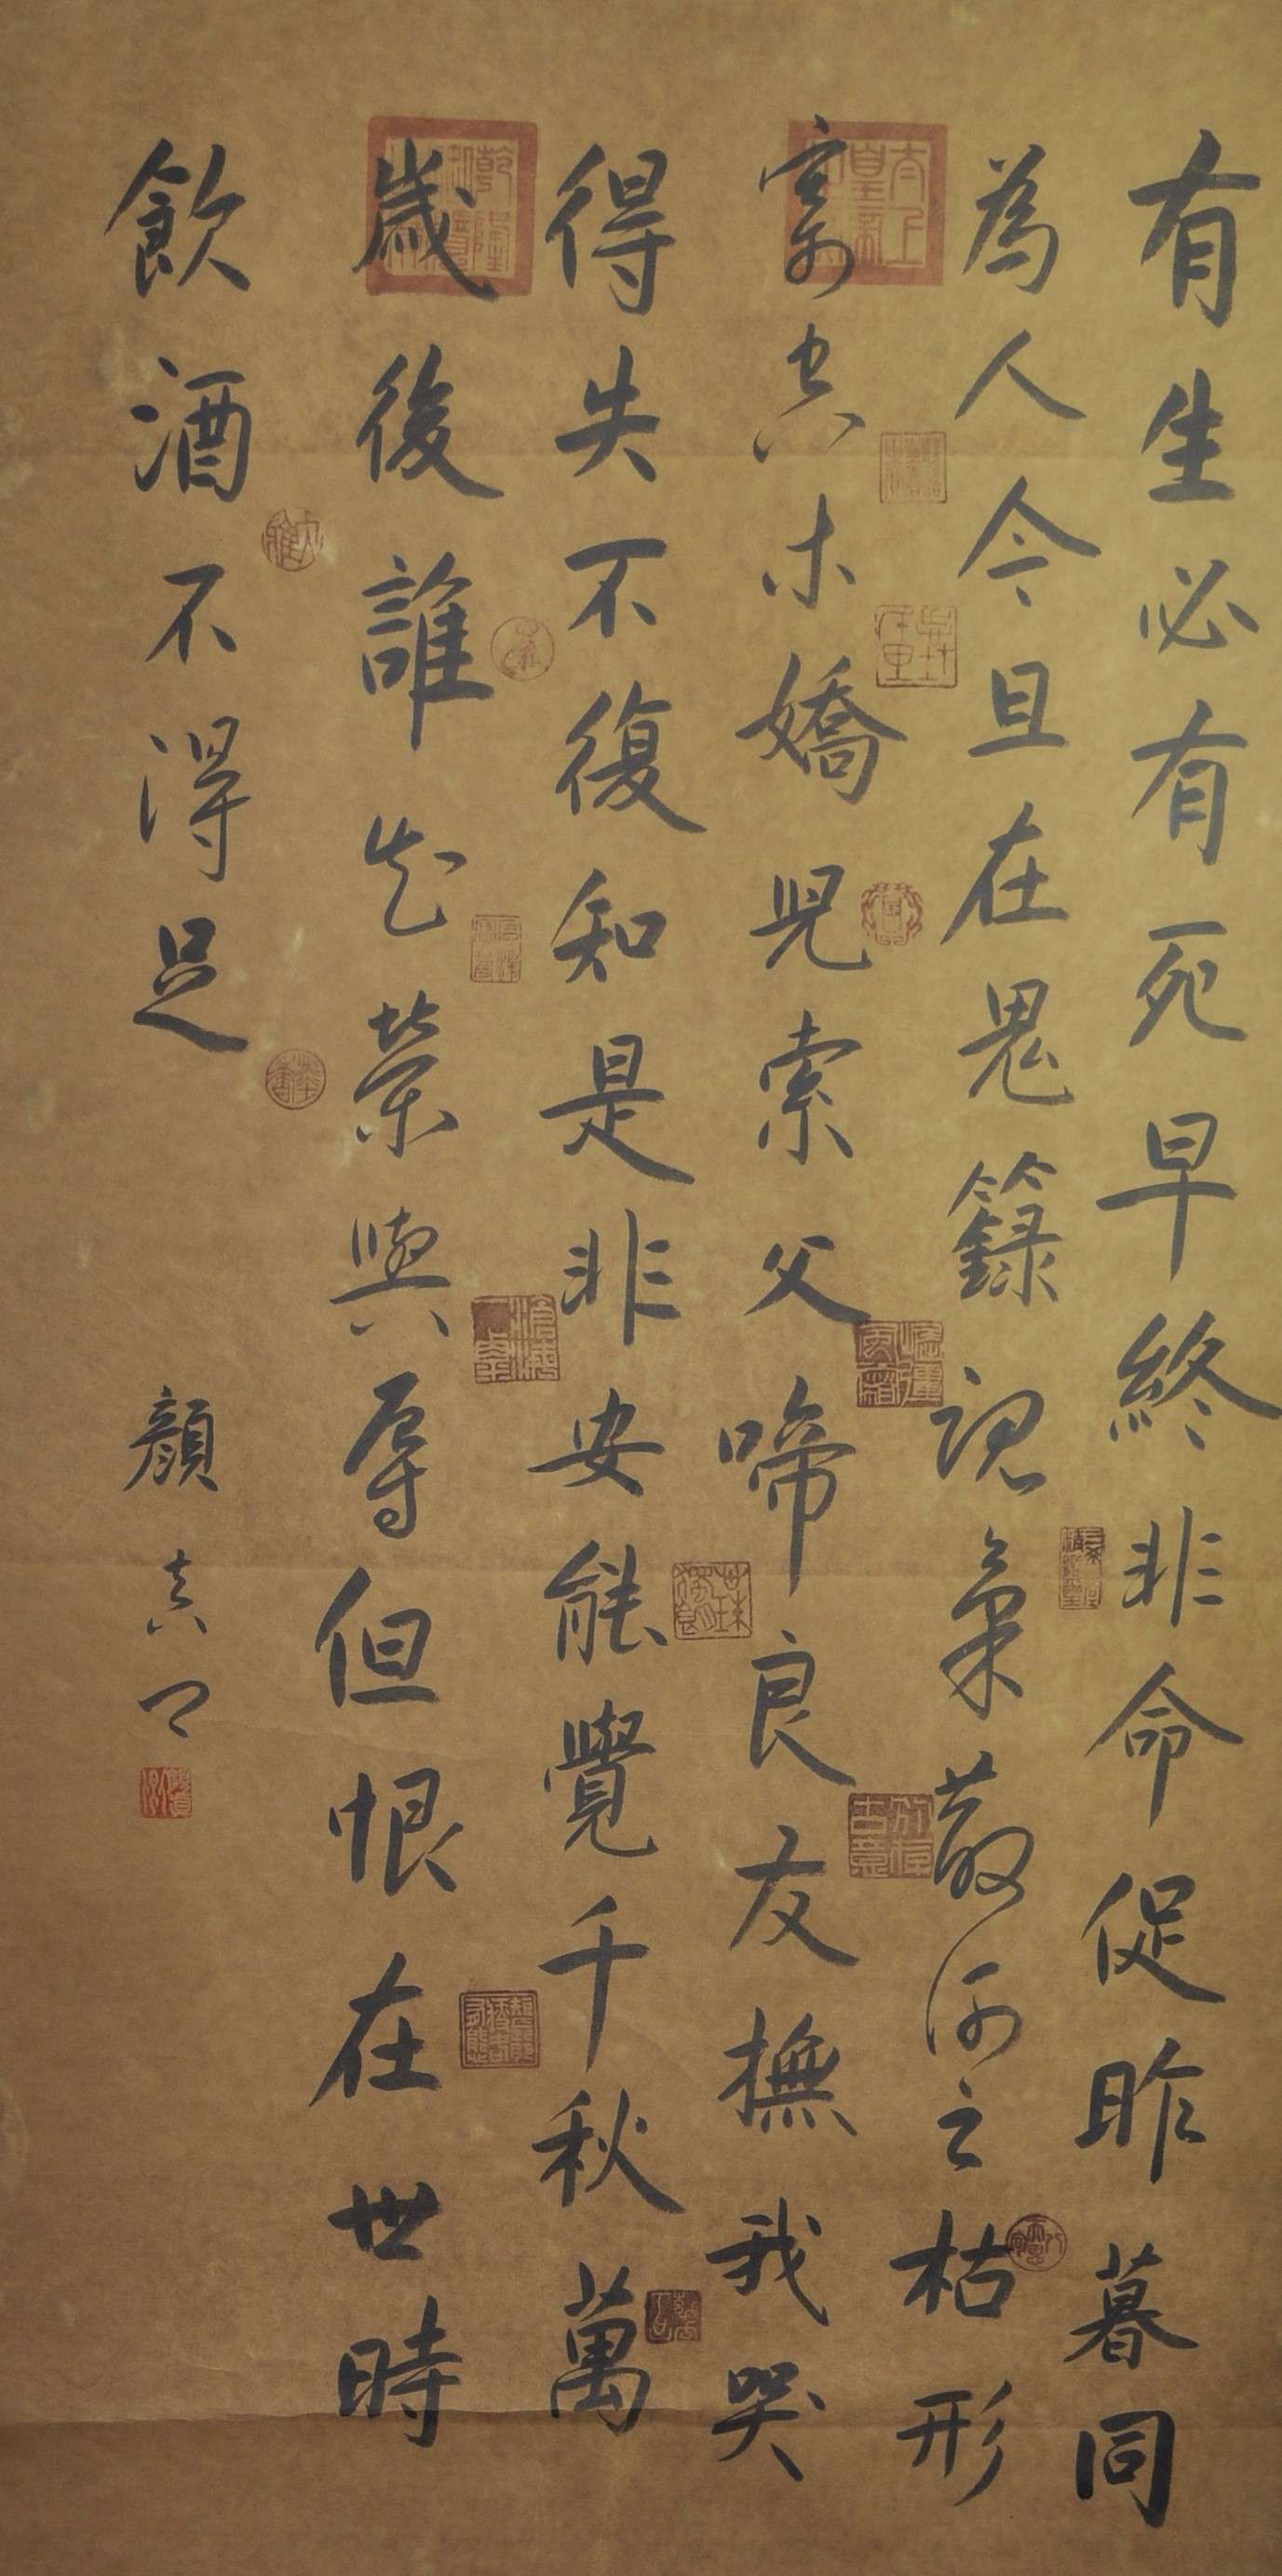 有生必有死早終非命促昨暮同
為人今且在鬼籙魂氣散何之枯形
寄空木嬌兒索父啼良友撫我哭
得失不復知是非安能覺千秋萬
歲後誰知榮與辱但恨在世時
飲酒不得足
顏真卿